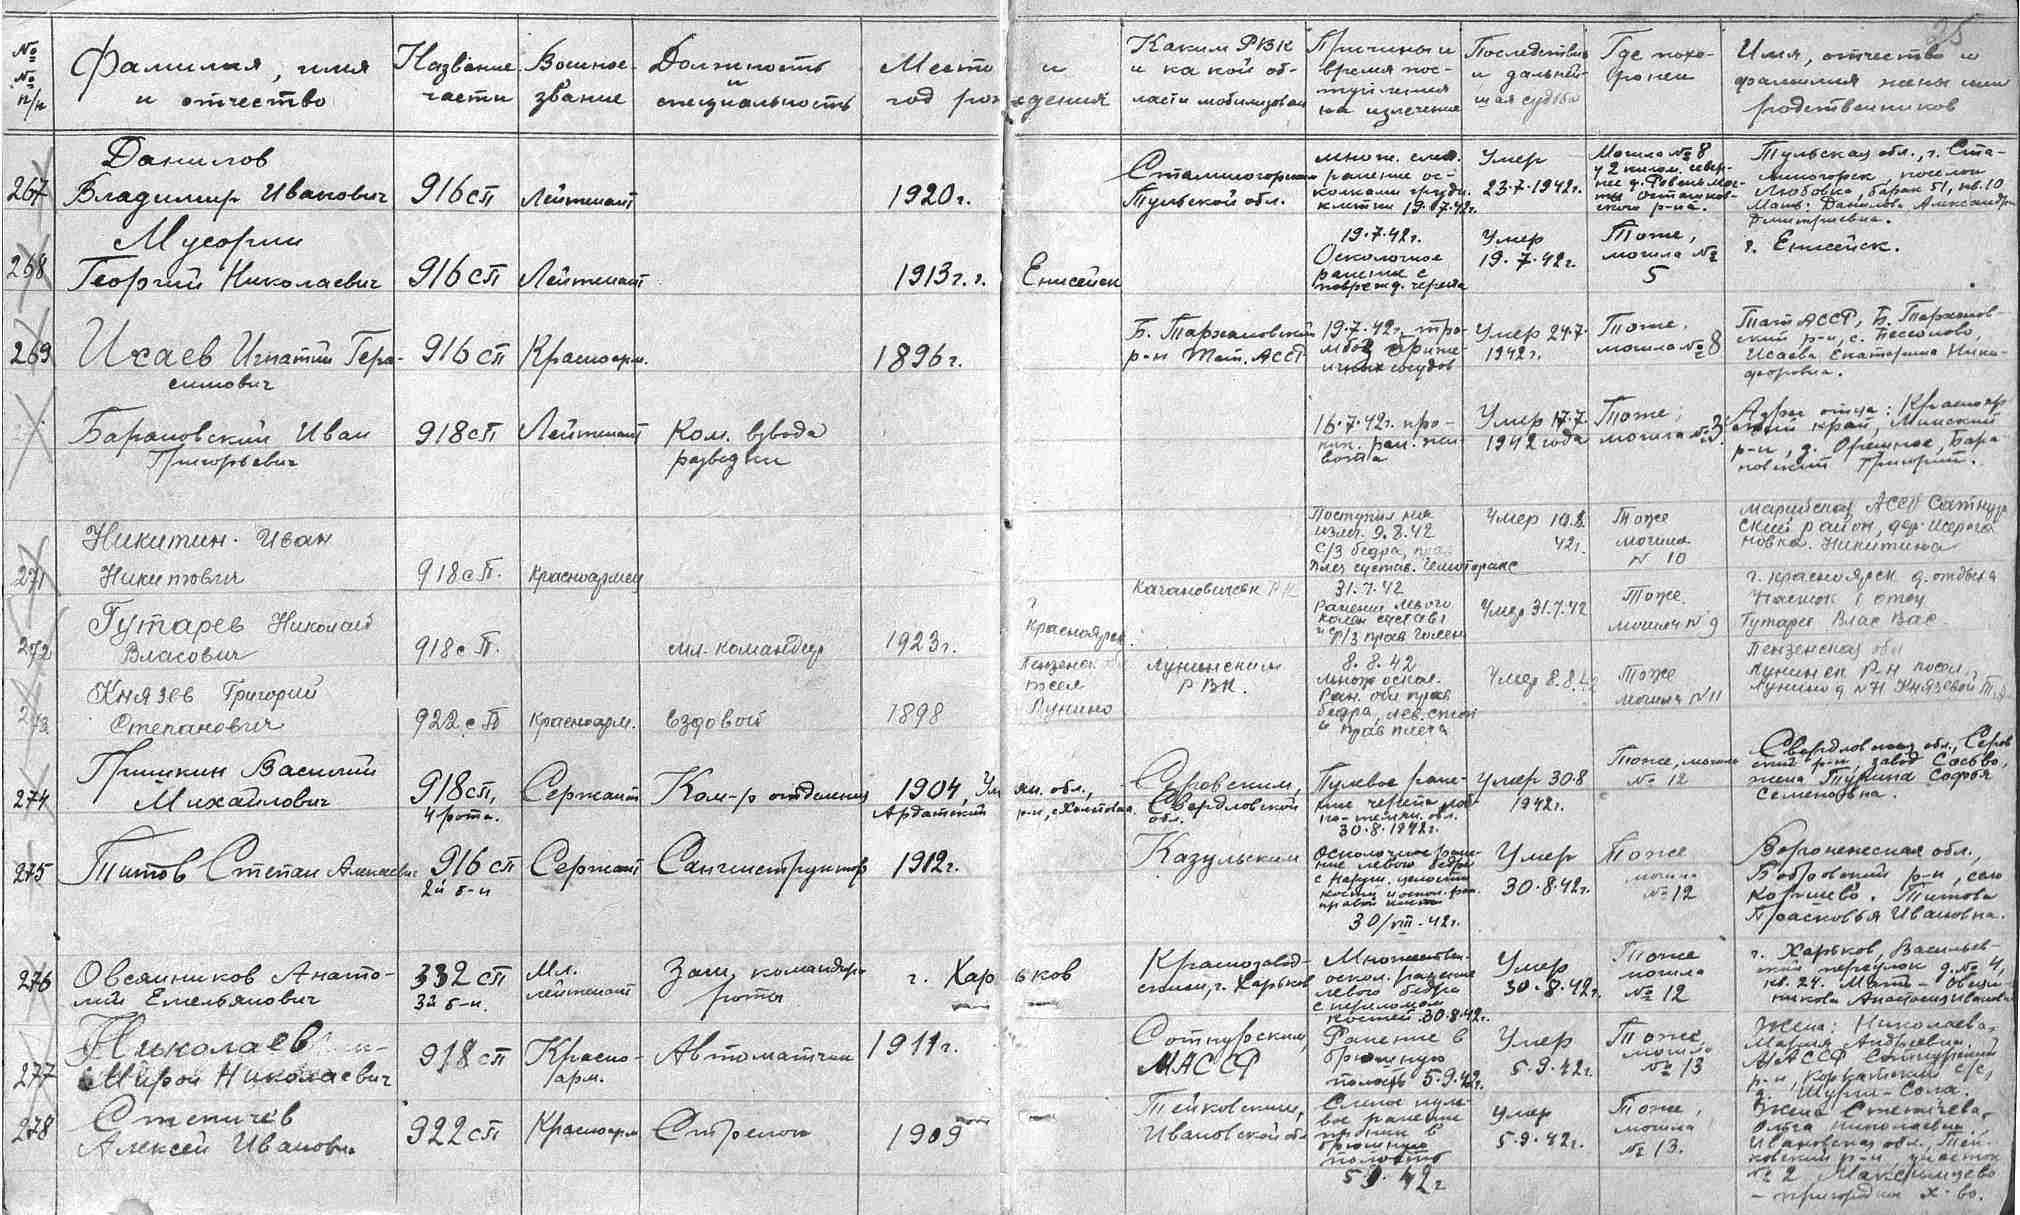 25
№ № п/п
Фамилия, имя
и отчество
Название
части
Военное
звание
Должность
и
специальность
Место и
год рождения
Каким РВК
и какой об-
ласти мобилизован
Причины и
время пос-
тупления
на излечение
Последствия
и дальней-
шая судьба
Где похо-
ронен
Имя, отчество и
фамилия жены или
родственников
267
Данилов
Владимир Иванович
916 сп
Лейтенант
1920 г.
Сталиногорским
Тульской обл.
множ. слеп.
ранение ос-
колками грудн.
клетки 19.7.42г.
Умер
23.7.1942г.
Могила № 8
у 2 килом. север-
нее д.
Осташков-
ского р-на.
Тульская обл., г. Ста-
линогорск, поселок
Любовка, барак 51, кв. 10
Мать: Данилова Александра
Дмитриевна.
268
Мусорин
Георгий Николаевич
916 сп
Лейтенант
1913 г. г. Енисейск
19.7.42г.
Осколочное
ранение с
поврежд. черепа
Умер
19.7.42г.
Тоже,
могила №
5
г. Енисейск.
269
Исаев Игнатий Гера-
симович
916 сп
Красноарм.
1896 г.
Б. Тархановский
р-н Тат. АССР
19.7.42г. тро-
мбоз брыже-
ечных сосудов
Умер 24.7.
1942г.
Тоже,
могила № 8
Тат АССР, Б. Тарханов-
ский р-н, с.
Исаева Екатерина Ники-
форовна.
Барановский Иван
Григорьевич
918 сп
Лейтенант
Ком. взвода
разведки
16.7.42г. про-
ник. ран. жи-
вота
Умер 17.7.
1942 года
Тоже,
могила № 3
Адрес отца: Краснояр
ский край, Минский
р-н, д. Орешное, Бара-
новский Григорий.
271
Никитин Иван
Никитович
918 с.п.
Красноармеец
Поступил на
излеч. 9.8.42
С/З бедра, прав
плеч сустав. Гемоторакс
Умер 10.8.
42г.
Тоже
могила
N 10
Марийская АССР Сотнур
ский район, дер.
Никитина
272
Гутарев Николай
Власович
918 с п.
мл. командир
1923 г.
Красноярск
Кагановичск РК
31.7.42
Ранение левого
колен сустава
и с/з прав голен
Умер 31.7.42
Тоже
могила N 9
г. Красноярск д. отдыха
отец
Гутарев Влас Вас.
273
Князев Григорий
Степанович
922 с п
Красноарм.
Ездовой
1898
Пензенск
Лунино
Лунинским
РВК.
8.8.42
Множ оскол.
Ран. обл прав
бедра, лев. стоп
и прав плеча
Умер 8.8.42
Тоже
могила N 11
Пензенская обл
Лунинск Р-н посел.
Лунино д N Н Князевой
274
Гришкин Василий
Михайлович
918 сп,
4 рота.
Сержант
Ком-р отделения
1904, Ул ян. обл.,
Ардатский р-н,
Серовским,
Свердловской
обл.
Пулевое ране-
ние черепа
30.8.1942г.
Умер 30.8
1942г.
Тоже, могила
№ 12
Свердловская обл., Серов
ский р-н, завод Сосьва,
жена Турина Софья
Семеновна.
275
Титов Степан Алексеевич
916 сп
2й б-н
Сержант
Санинструктор
1912 г.
Казульским
Осколочное ране-
ние левого бедра
с наруш. целости
кости и оскол. ран.
правой кисти
30/VIII.42г.
Умер
30.8.42г.
Тоже
могила
№ 12
Воронежская обл.,
Бобровский р-н, село
Коршево. Титова
Прасковья Ивановна.
276
Овсянников Анато-
лий Емельянович
332 сп
32 б-н.
Мл.
лейтенант
Зам. командира
роты
г. Харьков
Краснозавод-
ским, г. Харьков
Множествен.
оскол. ранение
левого бедра
с переломом
костей 30.8.42г.
Умер
30.8.42г.
Тоже
могила
№ 12
г. Харьков, Васильев-
ский переулок д. № 4,
кв. 24. Мать - Овсян-
никова Анастасия Ивановна
277
Николаев
Мирон Николаевич
918 сп
Красно-
арм.
Автоматчик
1911 г.
Сотнурским,
МАССР
Ранение в
брюшную
полость 5.9.42г.
Умер
5.9.42г.
Тоже,
могила
№ 13
Жена: Николаева
Мария Андреевна.
МАССР Сотнурский
р-н, с/с,
д. Шурга-Сола.
278
Степичев
Алексей Иванович
922 сп
Красноарм
Стрелок
1909
Тейковским,
Ивановской обл
Слепое пуле-
вое ранение
проник в
брюшную
полость
5.9.42г
Умер
5.9.42г.
Тоже,
могила
№ 13.
Жена Степичева
Ольга Николаевна.
Ивановская обл., Тей-
ковский р-н участок
№ 2
- пригородн. х-во.